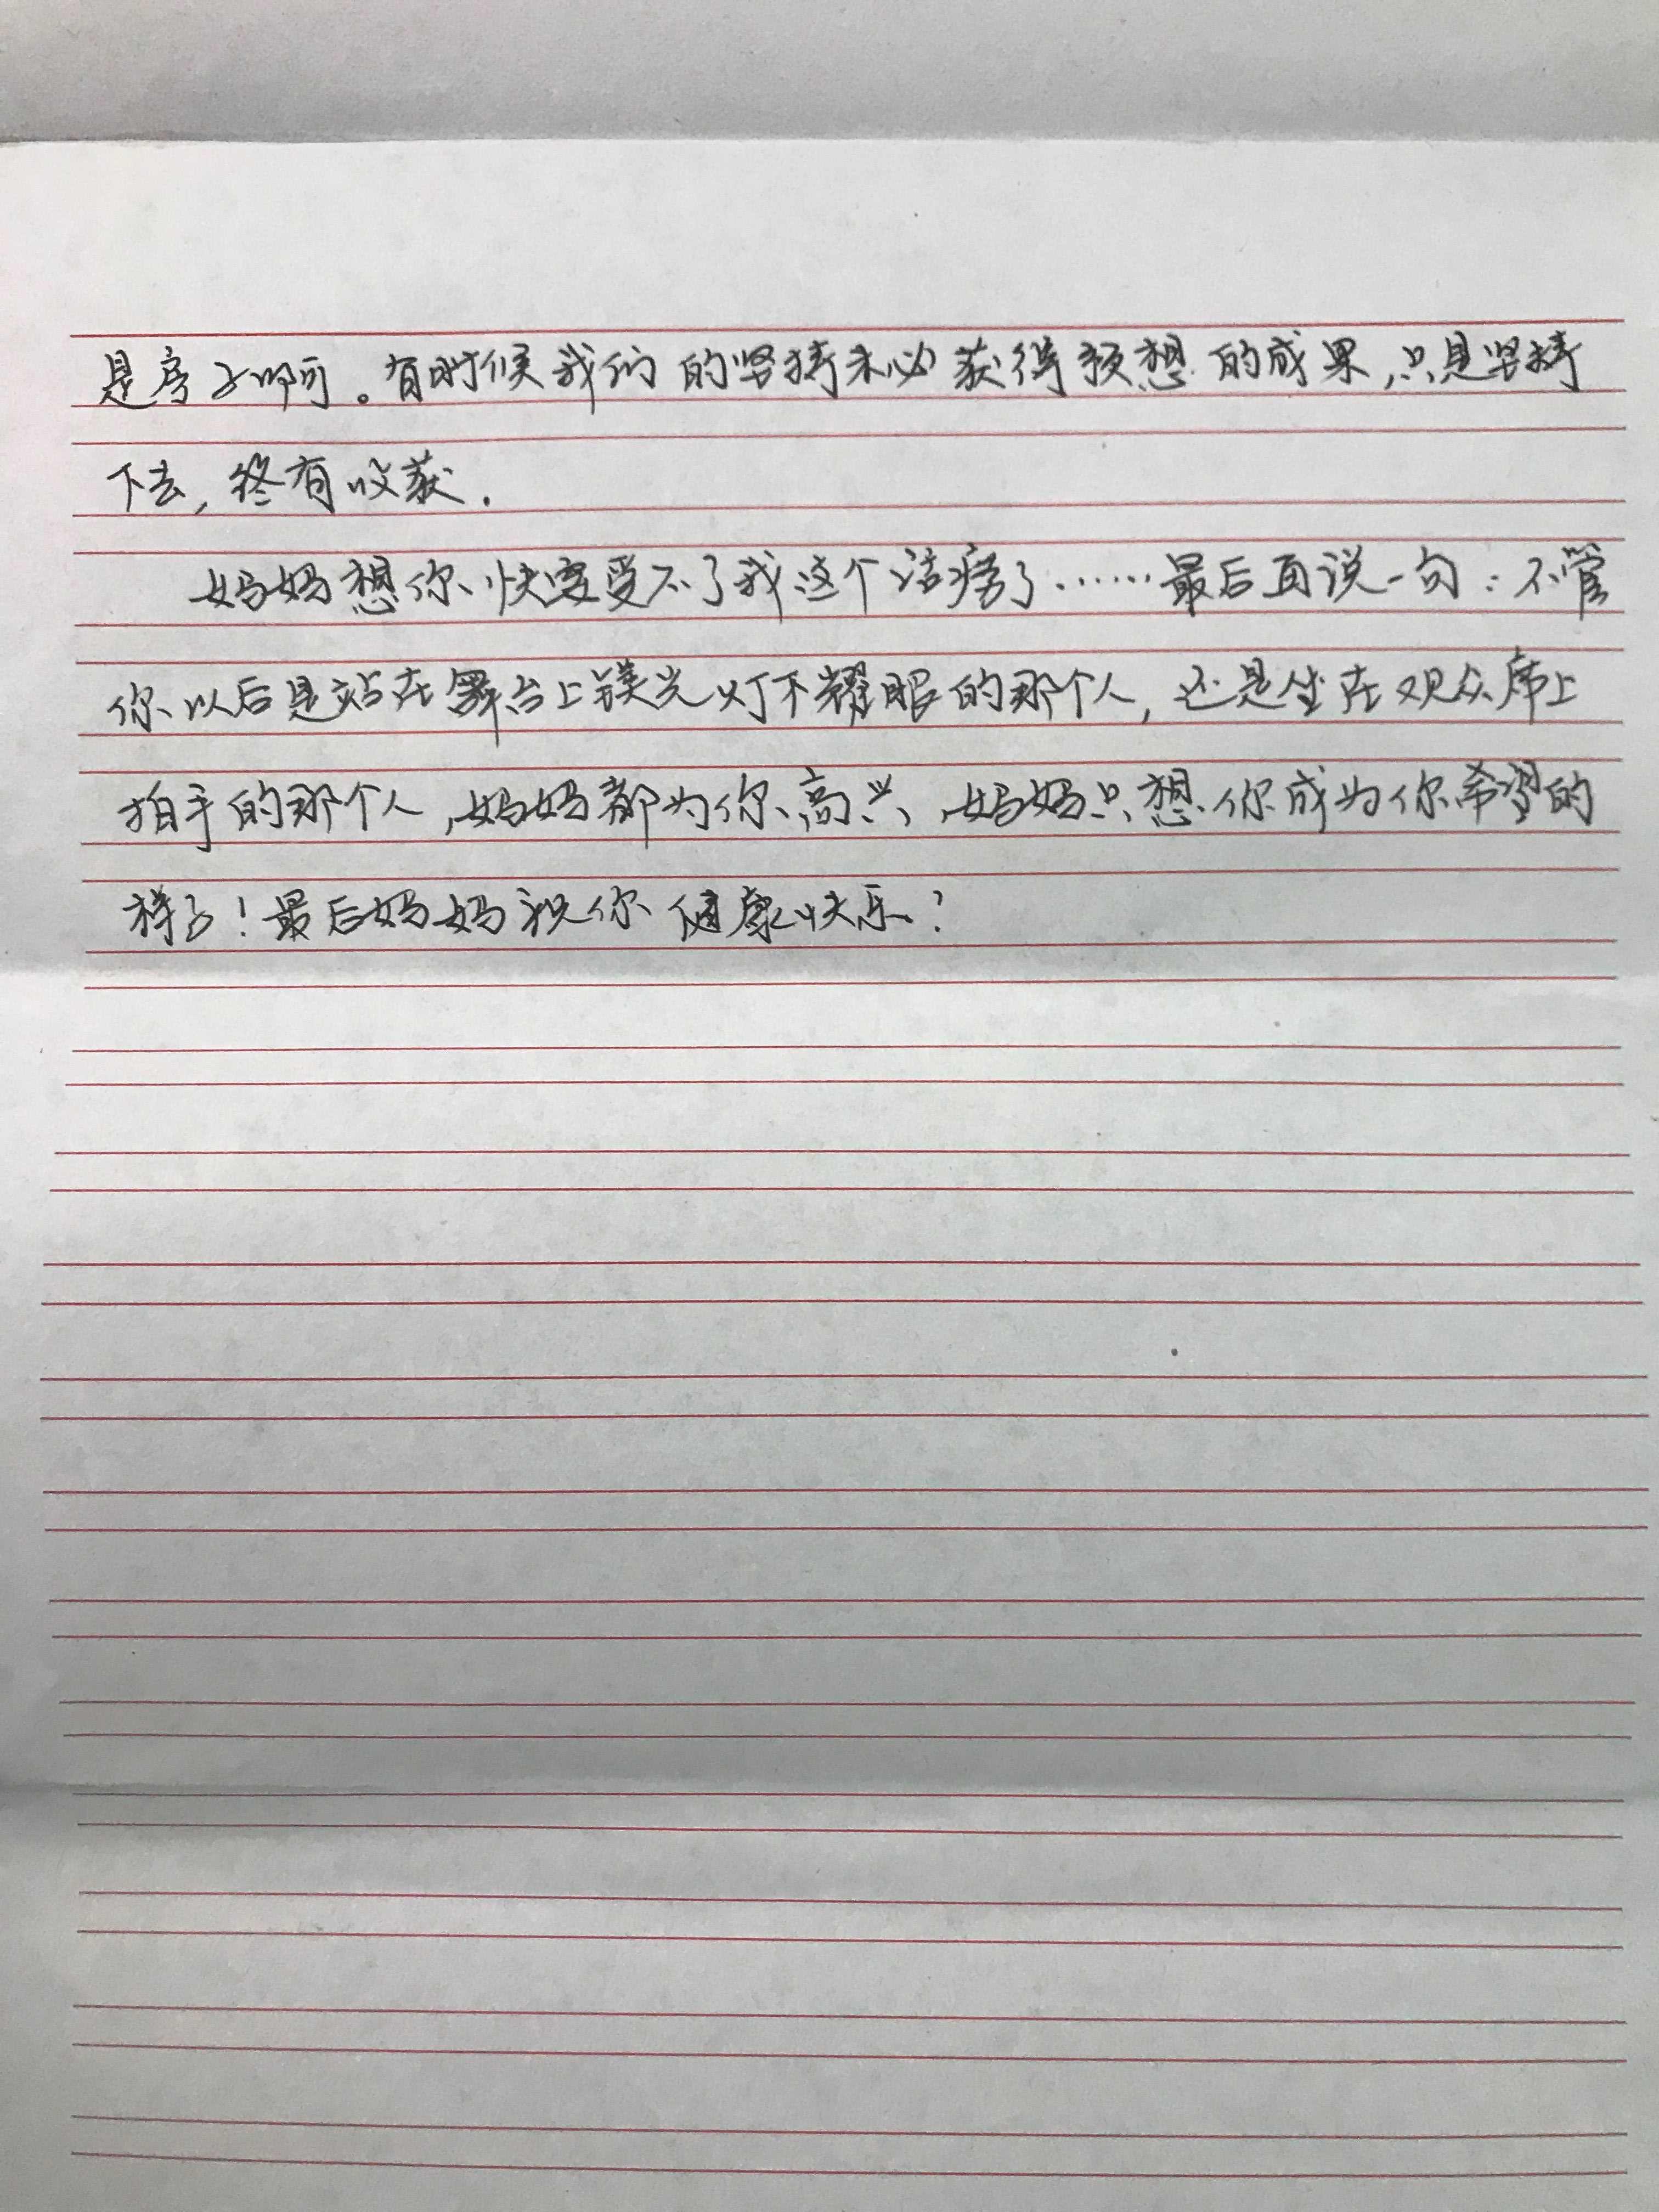 是房子啊。有时候我们的坚持未必获得预想的成果,只是坚持
下去,终有收获.
妈妈想你快要受不了我这个话痨了……最后再说一句:不管
你以后是站在舞台上镁光灯下耀眼的那个人,还是坐在观众席上
拍手的那个人,妈妈都为你高兴,妈妈只想你成为你希望的
样子!最后妈妈祝你健康快乐!